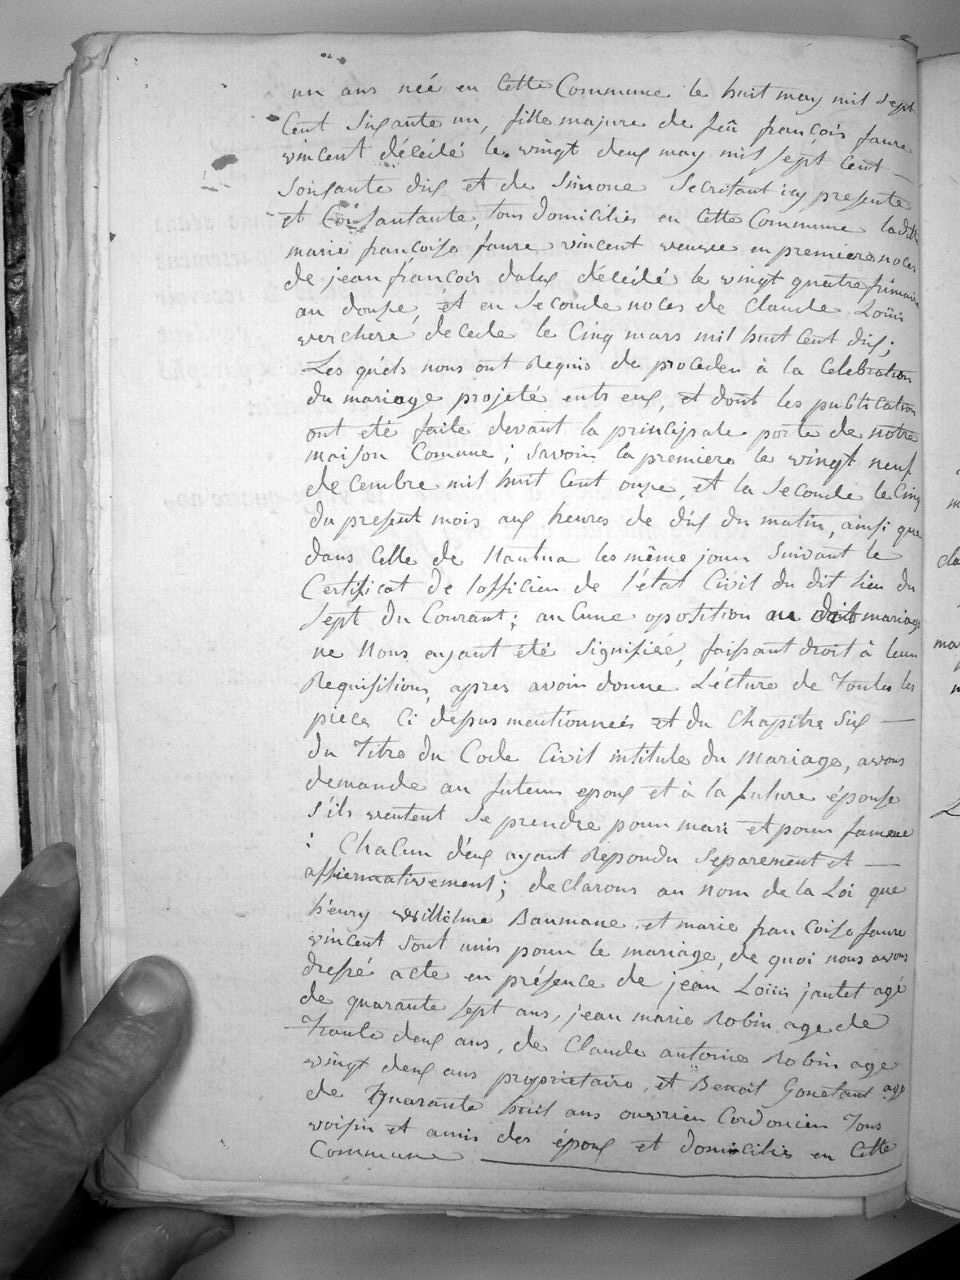 un ans née en Cette Commune le huit may mil sept
Cent sixante un, fille majure de feû françois faure
vincent décédé le vingt deux may mil sept cent —
soixante dix et de Simone Secretant icy presente
et Consantante, tous domiciliés en Cette Commune ladite
marie françoise faure vincent veuve en premiere noces
de jean françois dalex décédé le vingt quatre frimaire
an douze, et en seconde noces de Claude Loüis
verchere décede le Cinq mars mil huit Cent dix;
Les quéls nous ont Requis de proceder à la Celebration
du mariage projeté entr eux, et dont les publication
ont eté faite devant la principale porte de notre
maison Comune; savoir la premiere le vingt neuf
decembre mil huit Cent onze, et la seconde le Cinq
du present mois aux heures de dix du matin, ainsi que
dans Celle de Nantua les même jour suivant le
Certificat de l'officier de l'état Civil du dit lieu du
sept du Courant; aucune oposition au dit mariage
ne Nous ayant eté signifiée, faissant droit à leur
Requisitions, apres avoir donne Lécture de Toutes les
pieces Ci dessus mentionneés et du Chapitre Six —
du Titre du Code Civil intitule du Mariage, avons
demande au futeur epoux et à la future épouse
s'ils veulent se prendre pour mari et pour famme
: Chacun d'eux ayant Repondu Separement et —
affiermativement; declarons au nom de la Loi que
henry Willélme Baumane et marie francoise faure
vincent sont unis pour le mariage, de quoi nous avons
dressé acte en présence de jean Loüis jantet agé
de quarante sept ans, jean marie Robin age de
Trante deux ans, de Claude antoine Robin age
vingt deux ans proprietaire, et Benoit Gonetant agé
de quarante huit ans ouvrier Cordonier Tous
voisin et amis des époux et domiciliés en Cette
Commune